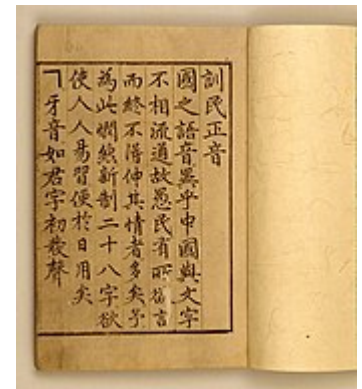 訓民正音
國之語音異乎中國與文字
不相流通故愚民有所欲言
而終不得伸其情者多矣予
為此憫然新制二十八字欲
使人人易習便於日用矣
ㄱ牙音如君字初發聲